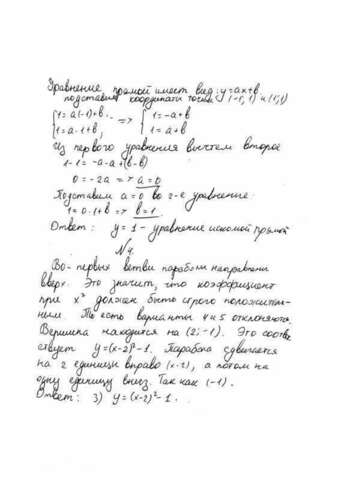 Уравнение прямой имеет вид: y=ax+b.
подставим координаты точек (-1;1) и (1;1)
{1=a(-1)+b . => {1=-a+b
{1=a·1+b, {1=a+b
Из первого уравнения вычтем второе
1-1=-a-a+(b-b)
0=-2a => a=0
Подставим a=0 во 2-е уравнение:
1=0·1+b => b=1.
Ответ: y=1 - уравнение искомой прямой
№4.
Во-первых ветви параболы направлены
вверх. Это значит, что коэффициент
при x² должен быть строго положитель-
ным. То есть варианты 4 и 5 отклоняются.
Вершина находится на (2;-1). Это соотве
ствует y=(x-2)²-1. Парабола сдвигается
на 2 единицы вправо (x-2), а потом на
одну единицу вниз. Так как (-1).
Ответ: 3) y=(x-2)²-1.